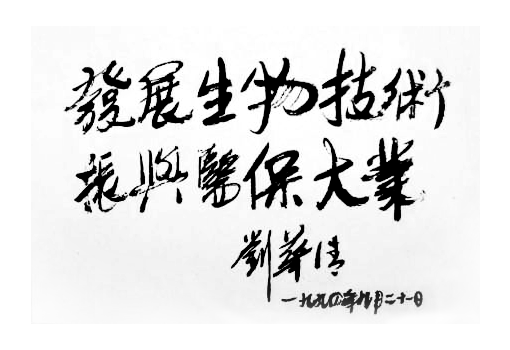 發展生物技術
振興醫保大業
劉華清
一九九〇年九月二十一日